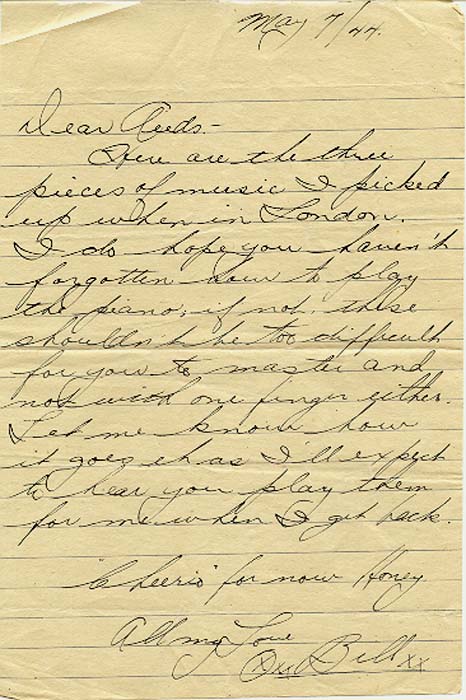 May 7/44.
Dear Reeds.-
Here are the three
pieces of music I picked
up when in London.
I do hope you haven't
forgotten how to play
the piano; if not, these
shouldn't be too difficult
for you to master and
not with one finger either.
Let me know how
it goes eh as I'll expect
to hear you play them
for me when I get back.
"Cheerio" for now Honey
All my Love
Bill xx